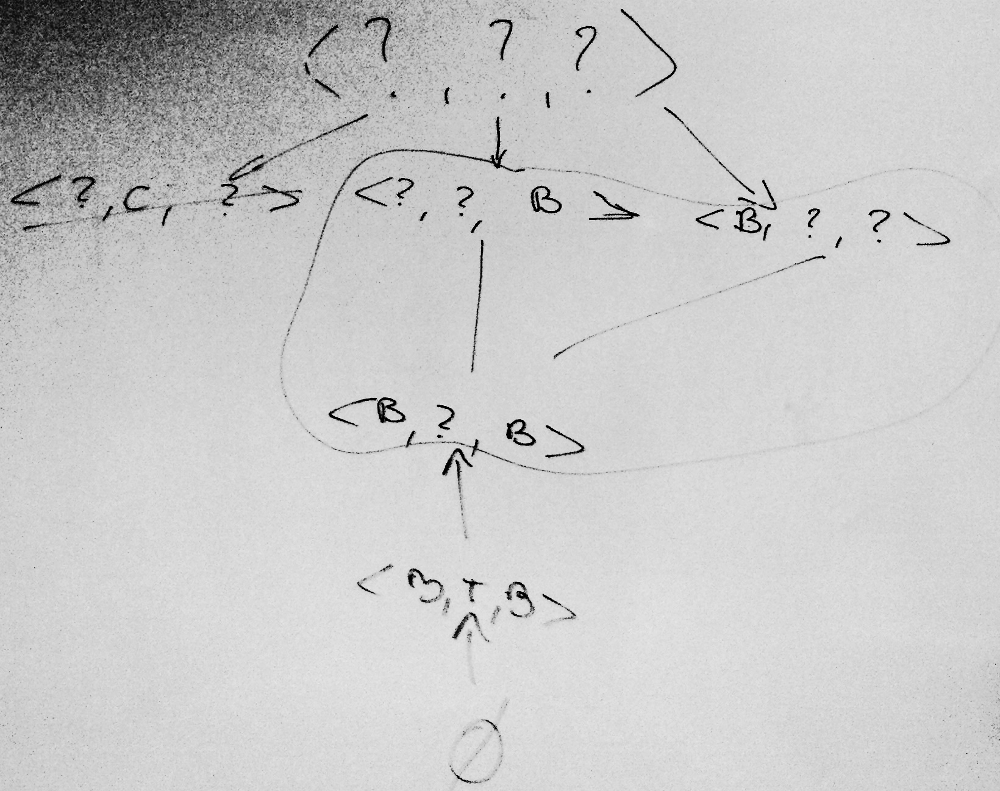 <?, ?, ?>
<?, C, ?> <?, ?, B> <B, ?, ?>
<B, ?, B>
<B, T, B>
∅